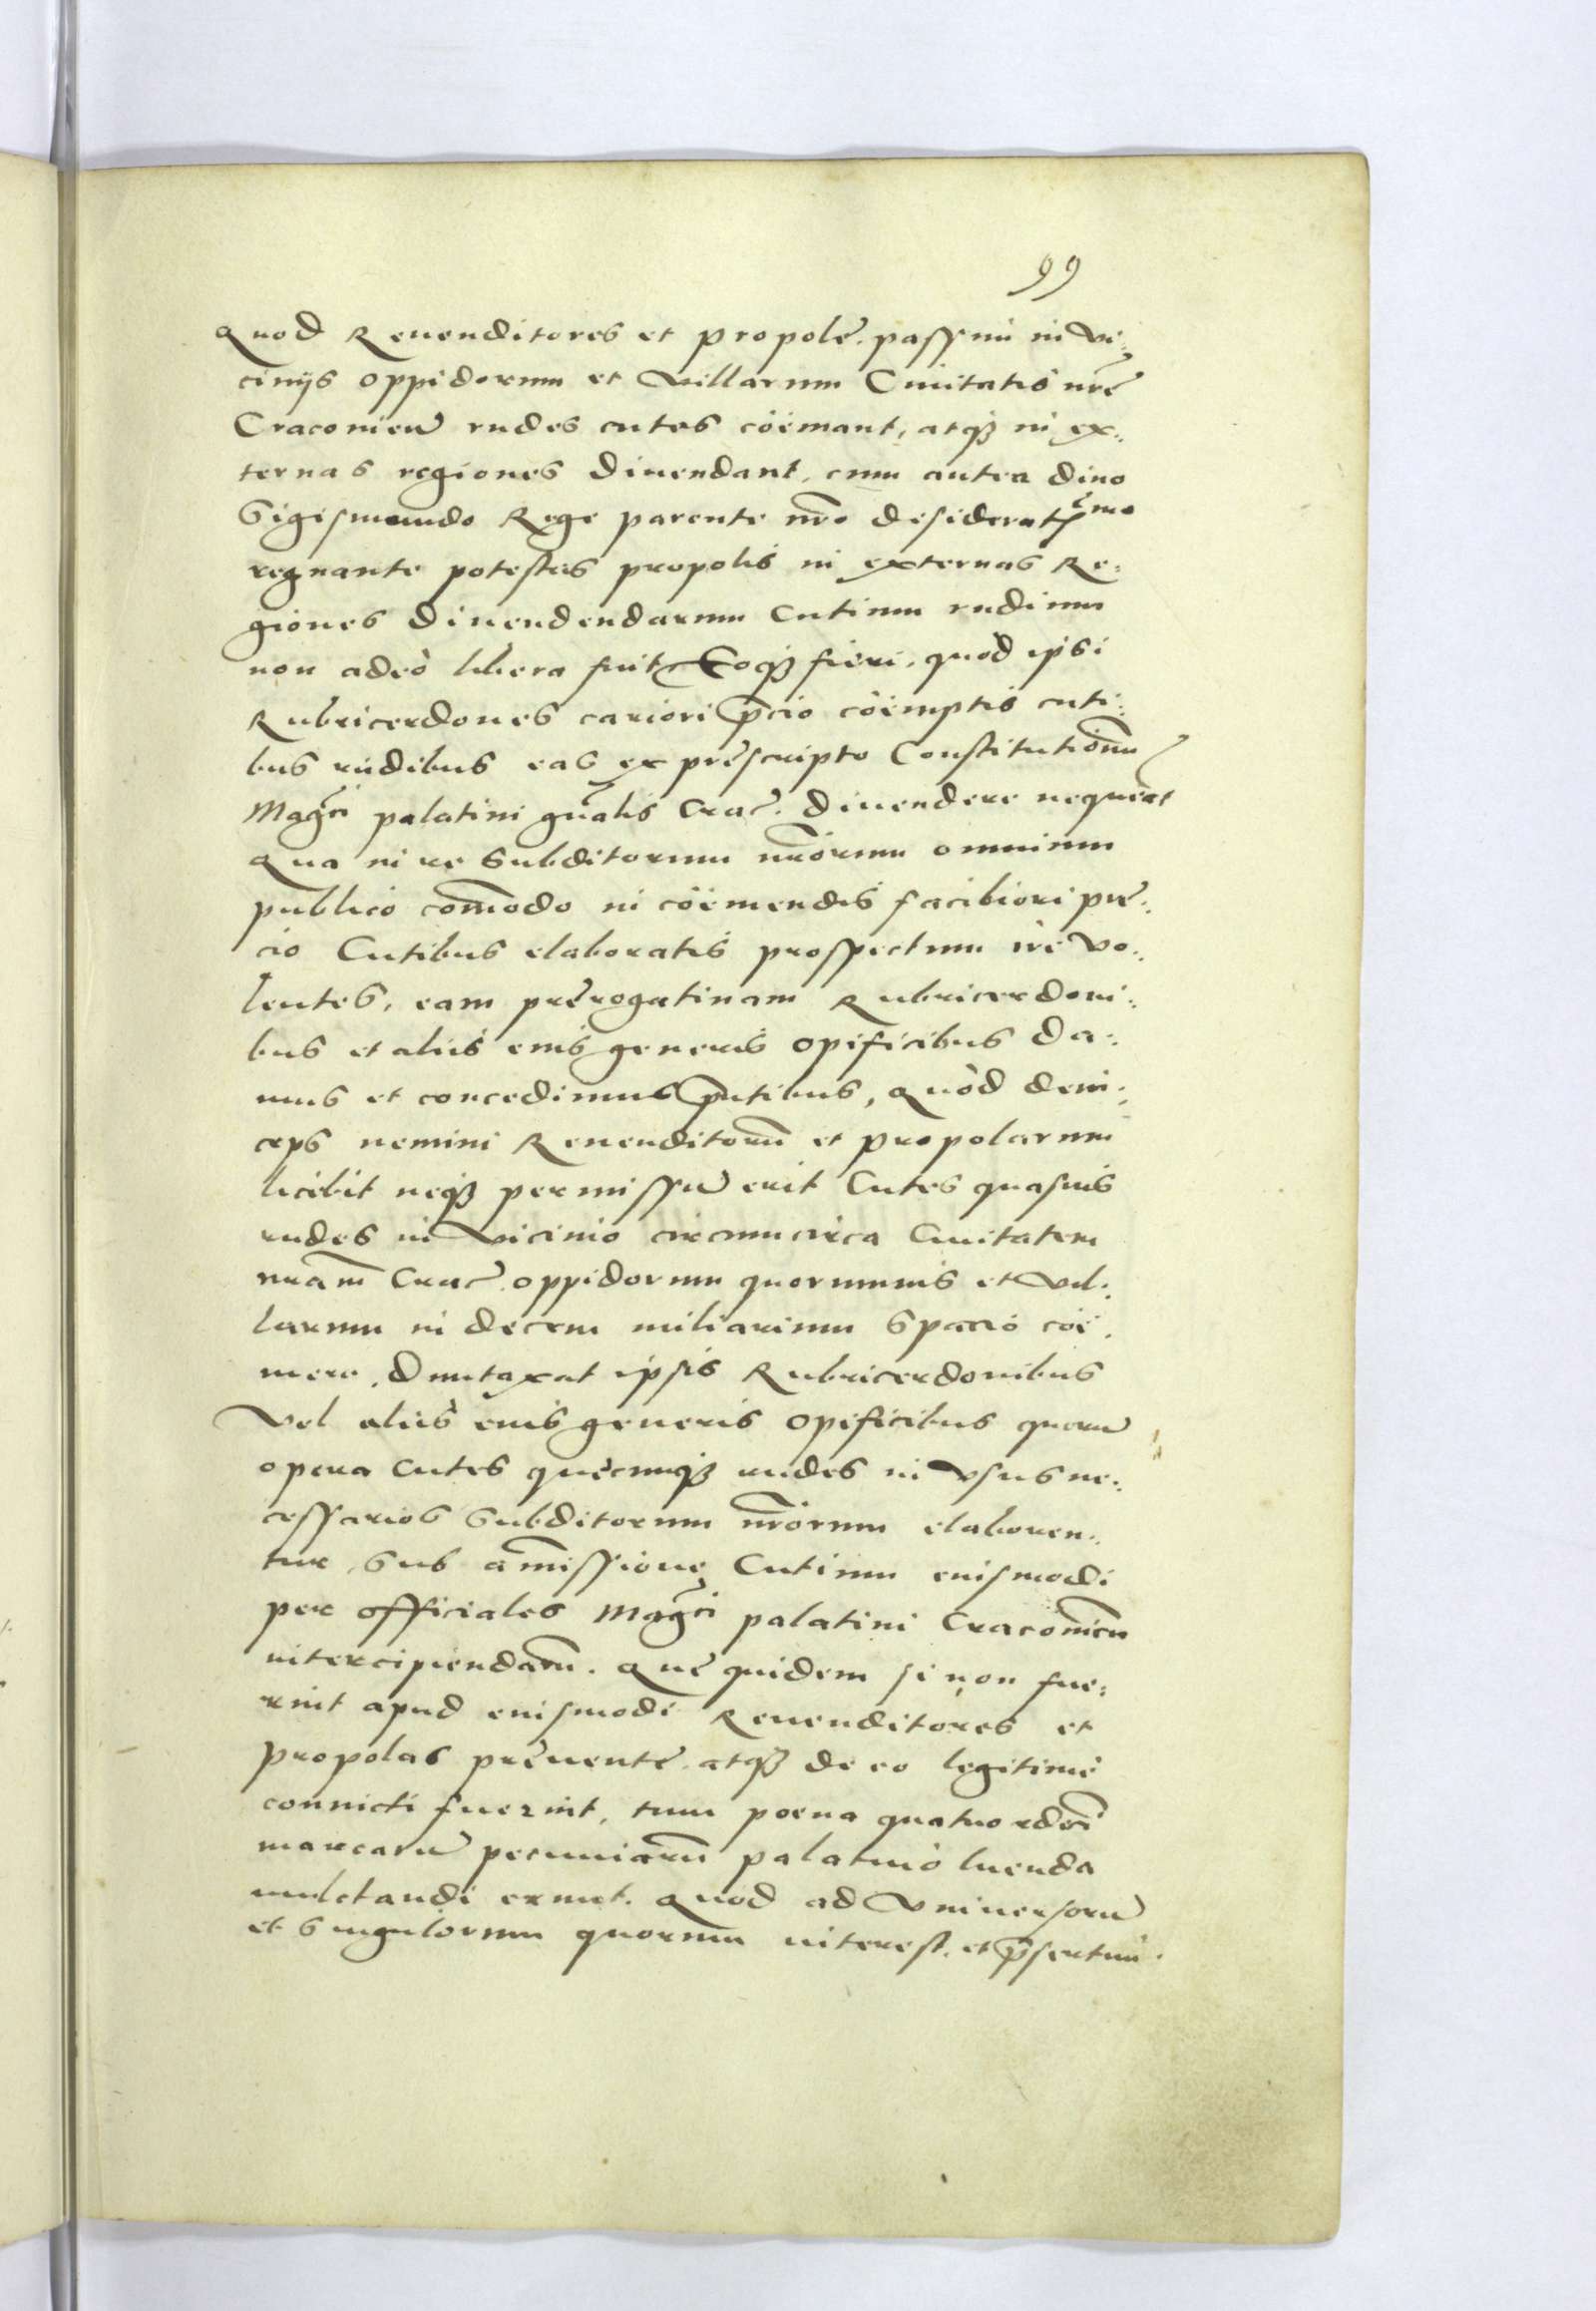 99
Quod Reuenditores et propolę passim in vi-
cinijs oppidorum et villarum Ciuitatis nrę
Cracouien̄ rudes cutes coëmant, atqȝ in ex-
ternas regiones diuendant, cum antea diuo
Sigismundo Rege parente nr̄o desideratissimo
regnante potestas propolis in externas Re-
giones diuendendarum cutium rudium
non adeò libera fuit, Eoqȝ fieri, quòd ipsi
Rubricerdones cariori p̄cio coëmptis cuti-
bus rudibus eas ex pręscripto Constitutionum
Mag̃ci palatini gn̄alis Crac̃. diuendere nequeāt
Qua in re Subditorum nr̄orum omnium
publico com̄odo in coëmendis faciliori prę-
cio Cutibus elaboratis prospectum ire vo-
lentes, eam pręrogatiuam Rubricerdoni-
bus et alijs eius generis opificibus da-
mus et concedimus p̄ntibus, Quòd dein-
ceps nemini Reuenditorū et propolarum
licebit neqȝ permissū erit Cutes quasuis
rudes in vicinio circumcirca Ciuitatem
nr̄am Crac̃. oppidorum quorumuis et vil-
larum in decem miliarium Spacio coë-
mere, duntaxat ipsis Rubricerdonibus
vel alijs eius generis opificibus quorū
opera cutes quęcunqȝ rudes in vsus ne-
cessarios Subditorum nr̄orum elaboren-
tur, sub amissione Cutium eiusmodi
per officiales Mag̃ci palatini Cracouien̄
intercipiendarū. Quę quidem si non fue-
rint apud eiusmodi Reuenditores et
propolas pręuentę, atqȝ de eo legitimè
conuicti fuerint, tum poena quatuordecī
marcarū pecuniarū palatino luenda
mulctandi erunt. Quod ad vniuersorū
et singulorum quorum interest, et p̄sertim